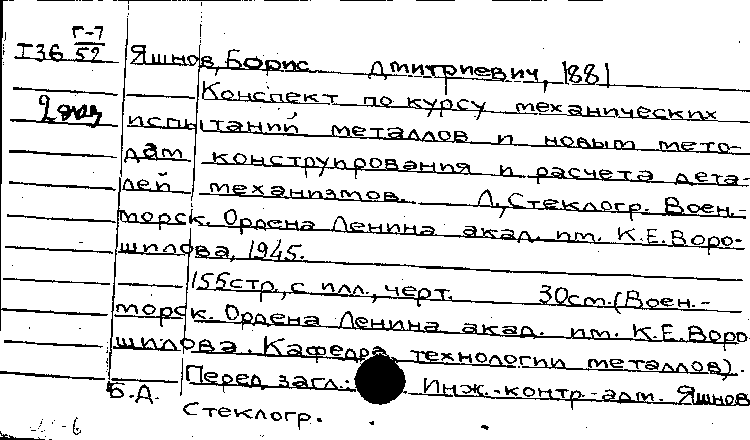 Г-7
I36 52 Яшнов, Борис Дмитриевич, 1881
Конспект по курсу механических
2 экз испытаний металлов и новым мето-
дам конструирования и расчета дета-
лей механизмов. Л., Стеклогр. Воен.-
морск. Ордена Ленина акад. им. К.Е.Воро-
шилова, 1945.
155стр., с илл., черт. 30см. (Воен.-
морск. Ордена Ленина акад. им. К.Е.Воро
шилова. Кафедра технологии металлов).
Перед загл.: Инж.-контр-адм. Яшнов
Б.Д.
Стеклогр.